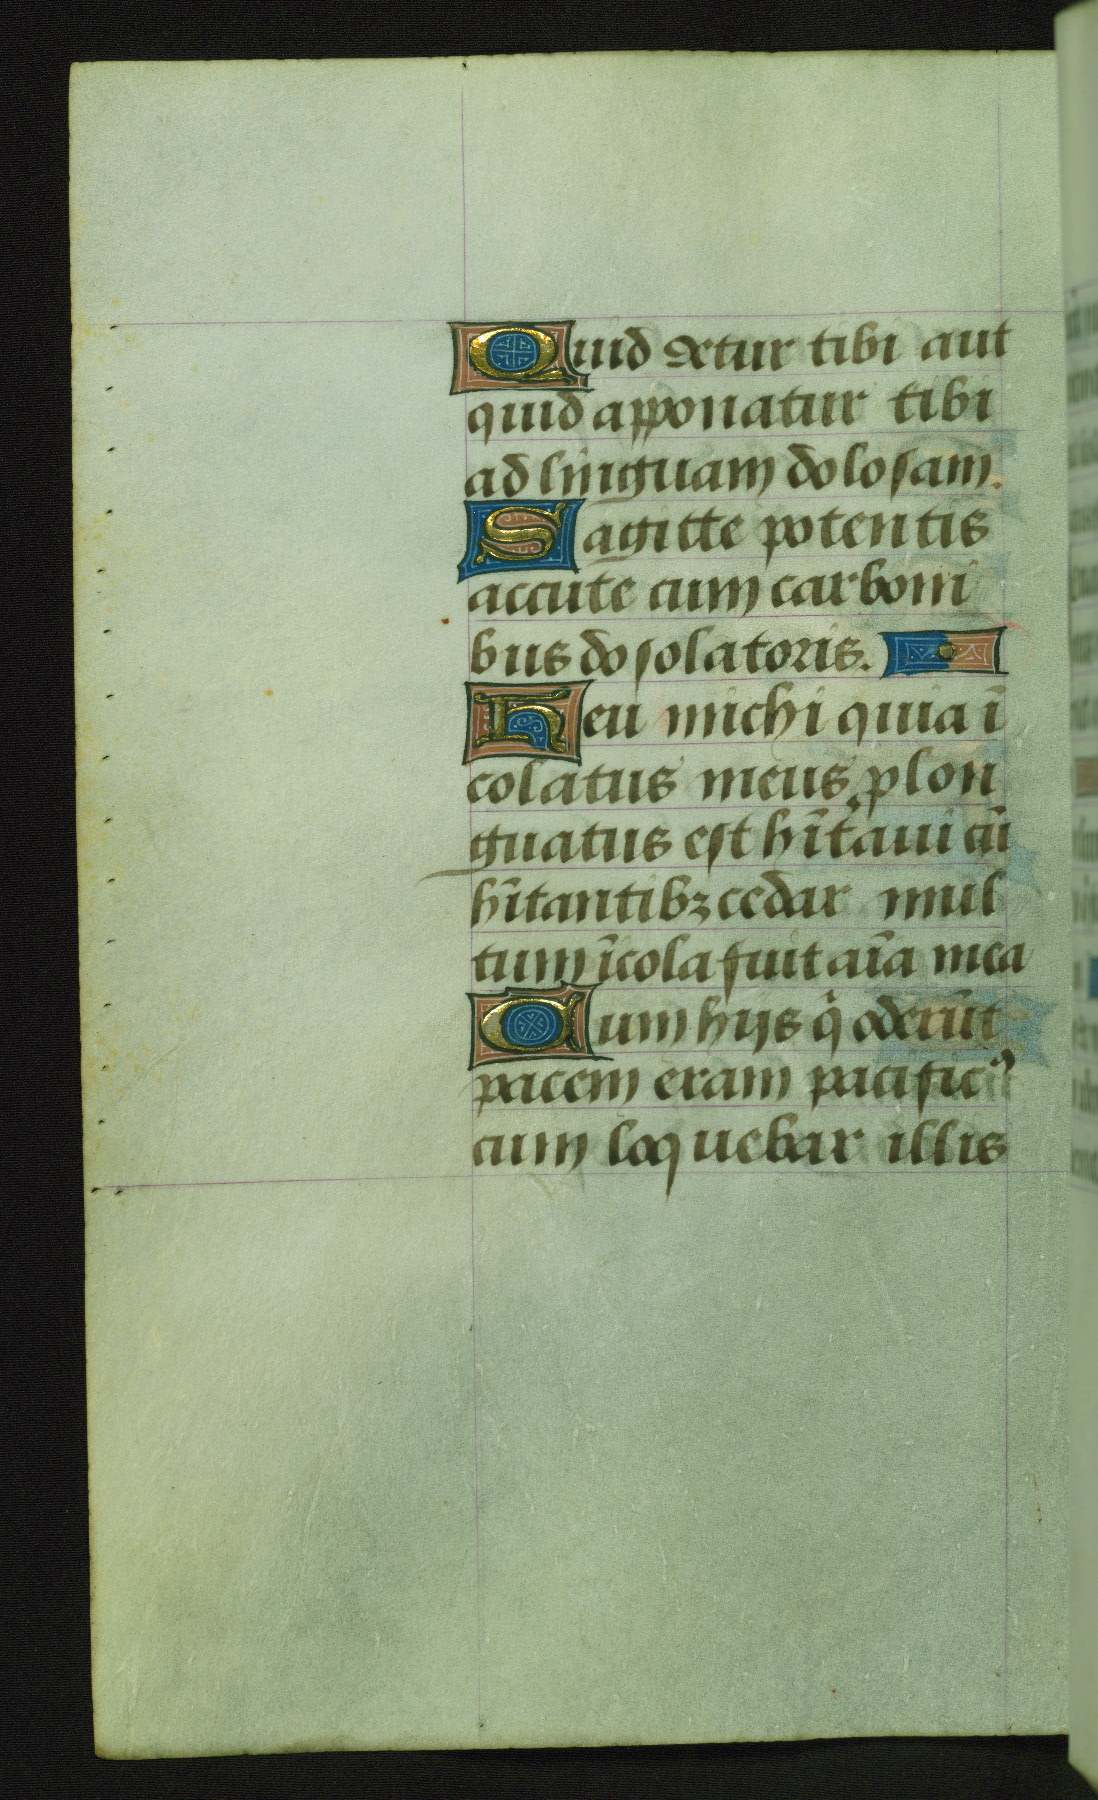 Quid detur tibi aut
quid apponatur tibi
ad linguam dolosam.
Sagitte potentis
accute cum carboni
bus dosolatoris.
Heu michi quia ī
colatus meus plon
guatus est hītaui cū
hītantibꝫ cedar mul
tum īcola fuit aīa mea
Cum hijs q̄ oderūt
pacem eram pacificꝰ
cum loquebar illis